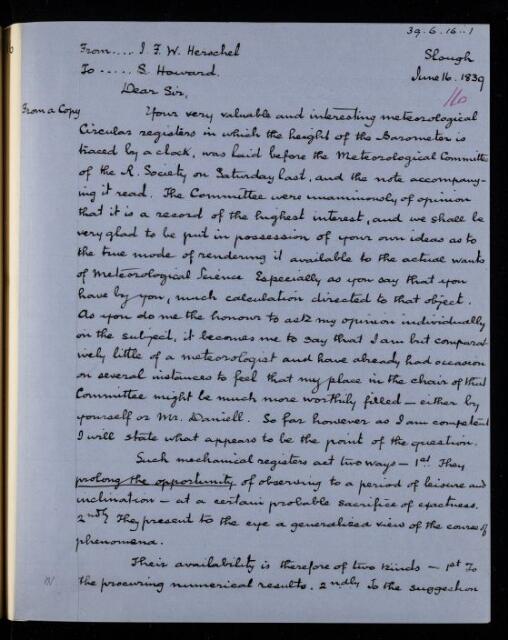 39.6.16..1
From.... J. F. W. Herschel
Slough
To ..... S. Howard.
June 16. 1839
Dear Sir,
160
From a Copy
Your very valuable and interesting meteorological
Circular registers in which the height of the Barometer is
traced by a clock, was laid before the Meteorological Committee
of the R. Society on Saturday last, and the note accompany-
ing it read. The Committee were unanimously of opinion
that it is a record of the highest interest, and we shall be
very glad to be put in possession of your own ideas as to
the true mode of rendering it available to the actual wants
of Meteorological Science Especially as you say that you
have by you, much calculation directed to that object.
As you do me the honour to ask my opinion individually
on the subject, it becomes me to say that I am but comparat
ively little of a meteorologist and have already had occasion
on several instances to feel that my place in the chair of that
Committee might be much more worthily filled — either by
yourself or Mr. Daniell. So far however as I am competent
I will state what appears to be the point of the question.
Such mechanical registers act two ways — 1st. They
prolong the opportunity of observing to a period of leisure and
inclination — at a certain probable sacrifice of exactness.
2ndly They present to the eye a generalised view of the course of
phenomena.
Their availability is therefore of two kinds — 1st To
the procuring numerical results. 2ndly To the suggestion